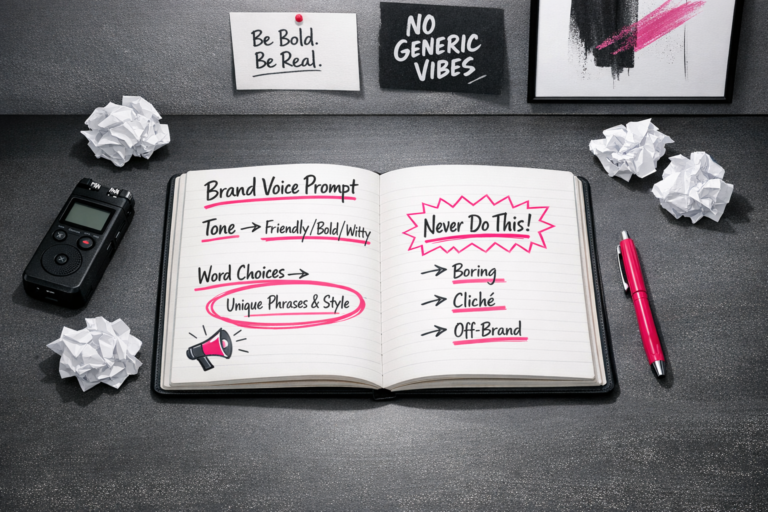 Be Bold.
Be Real.
NO
GENERIC
VIBES
Brand Voice Prompt
Tone → Friendly/Bold/Witty
Word Choices →
Unique Phrases & Style
Never Do This!
→ Boring
→ Cliché
→ Off-Brand